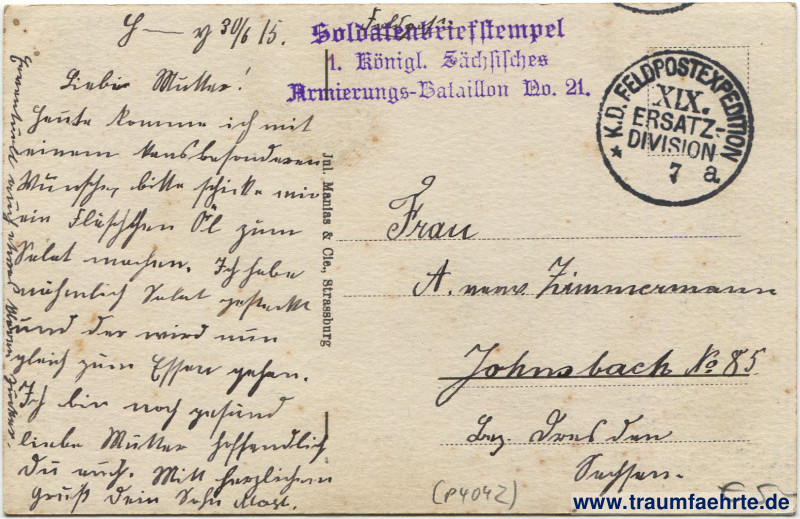 H – y 30/6 15.
Feldpost.
Soldatenbriefstempel
1. Königl. Sächsisches
Armierungs-Bataillon No. 21.
K.D. FELDPOSTEXPEDITION
XIX.
ERSATZ-
DIVISION
7 a
Liebe Mutter!
Heute komme ich mit
einem besonderen
Wunsche, bitte schicke mir
ein Fläschchen Öl zum
Salat machen. Ich habe
nähmlich Salat gesteckt
und der wird nun
gleich zum Essen gehen.
Ich bin noch gesund
liebe Mutter hoffendlich
Du auch. Mit herzlichem
Gruß Dein Sohn Max.
Eventuell auch etwas
Jul. Manias & Cie., Strassburg
Frau
A. verw. Zimmermann
Johnsbach No 85
Bez. Dresden
Sachsen.
(P4042)
€ 5
www.traumfaehrte.de